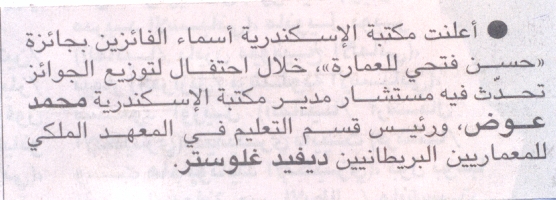 ● أعلنت مكتبة الإسكندرية أسماء الفائزين بجائزة
«حسن فتحي للعمارة»، خلال احتفال لتوزيع الجوائز
تحدّث فيه مستشار مدير مكتبة الإسكندرية محمد
عوض، ورئيس قسم التعليم في المعهد الملكي
للمعماريين البريطانيين ديفيد غلوستر.